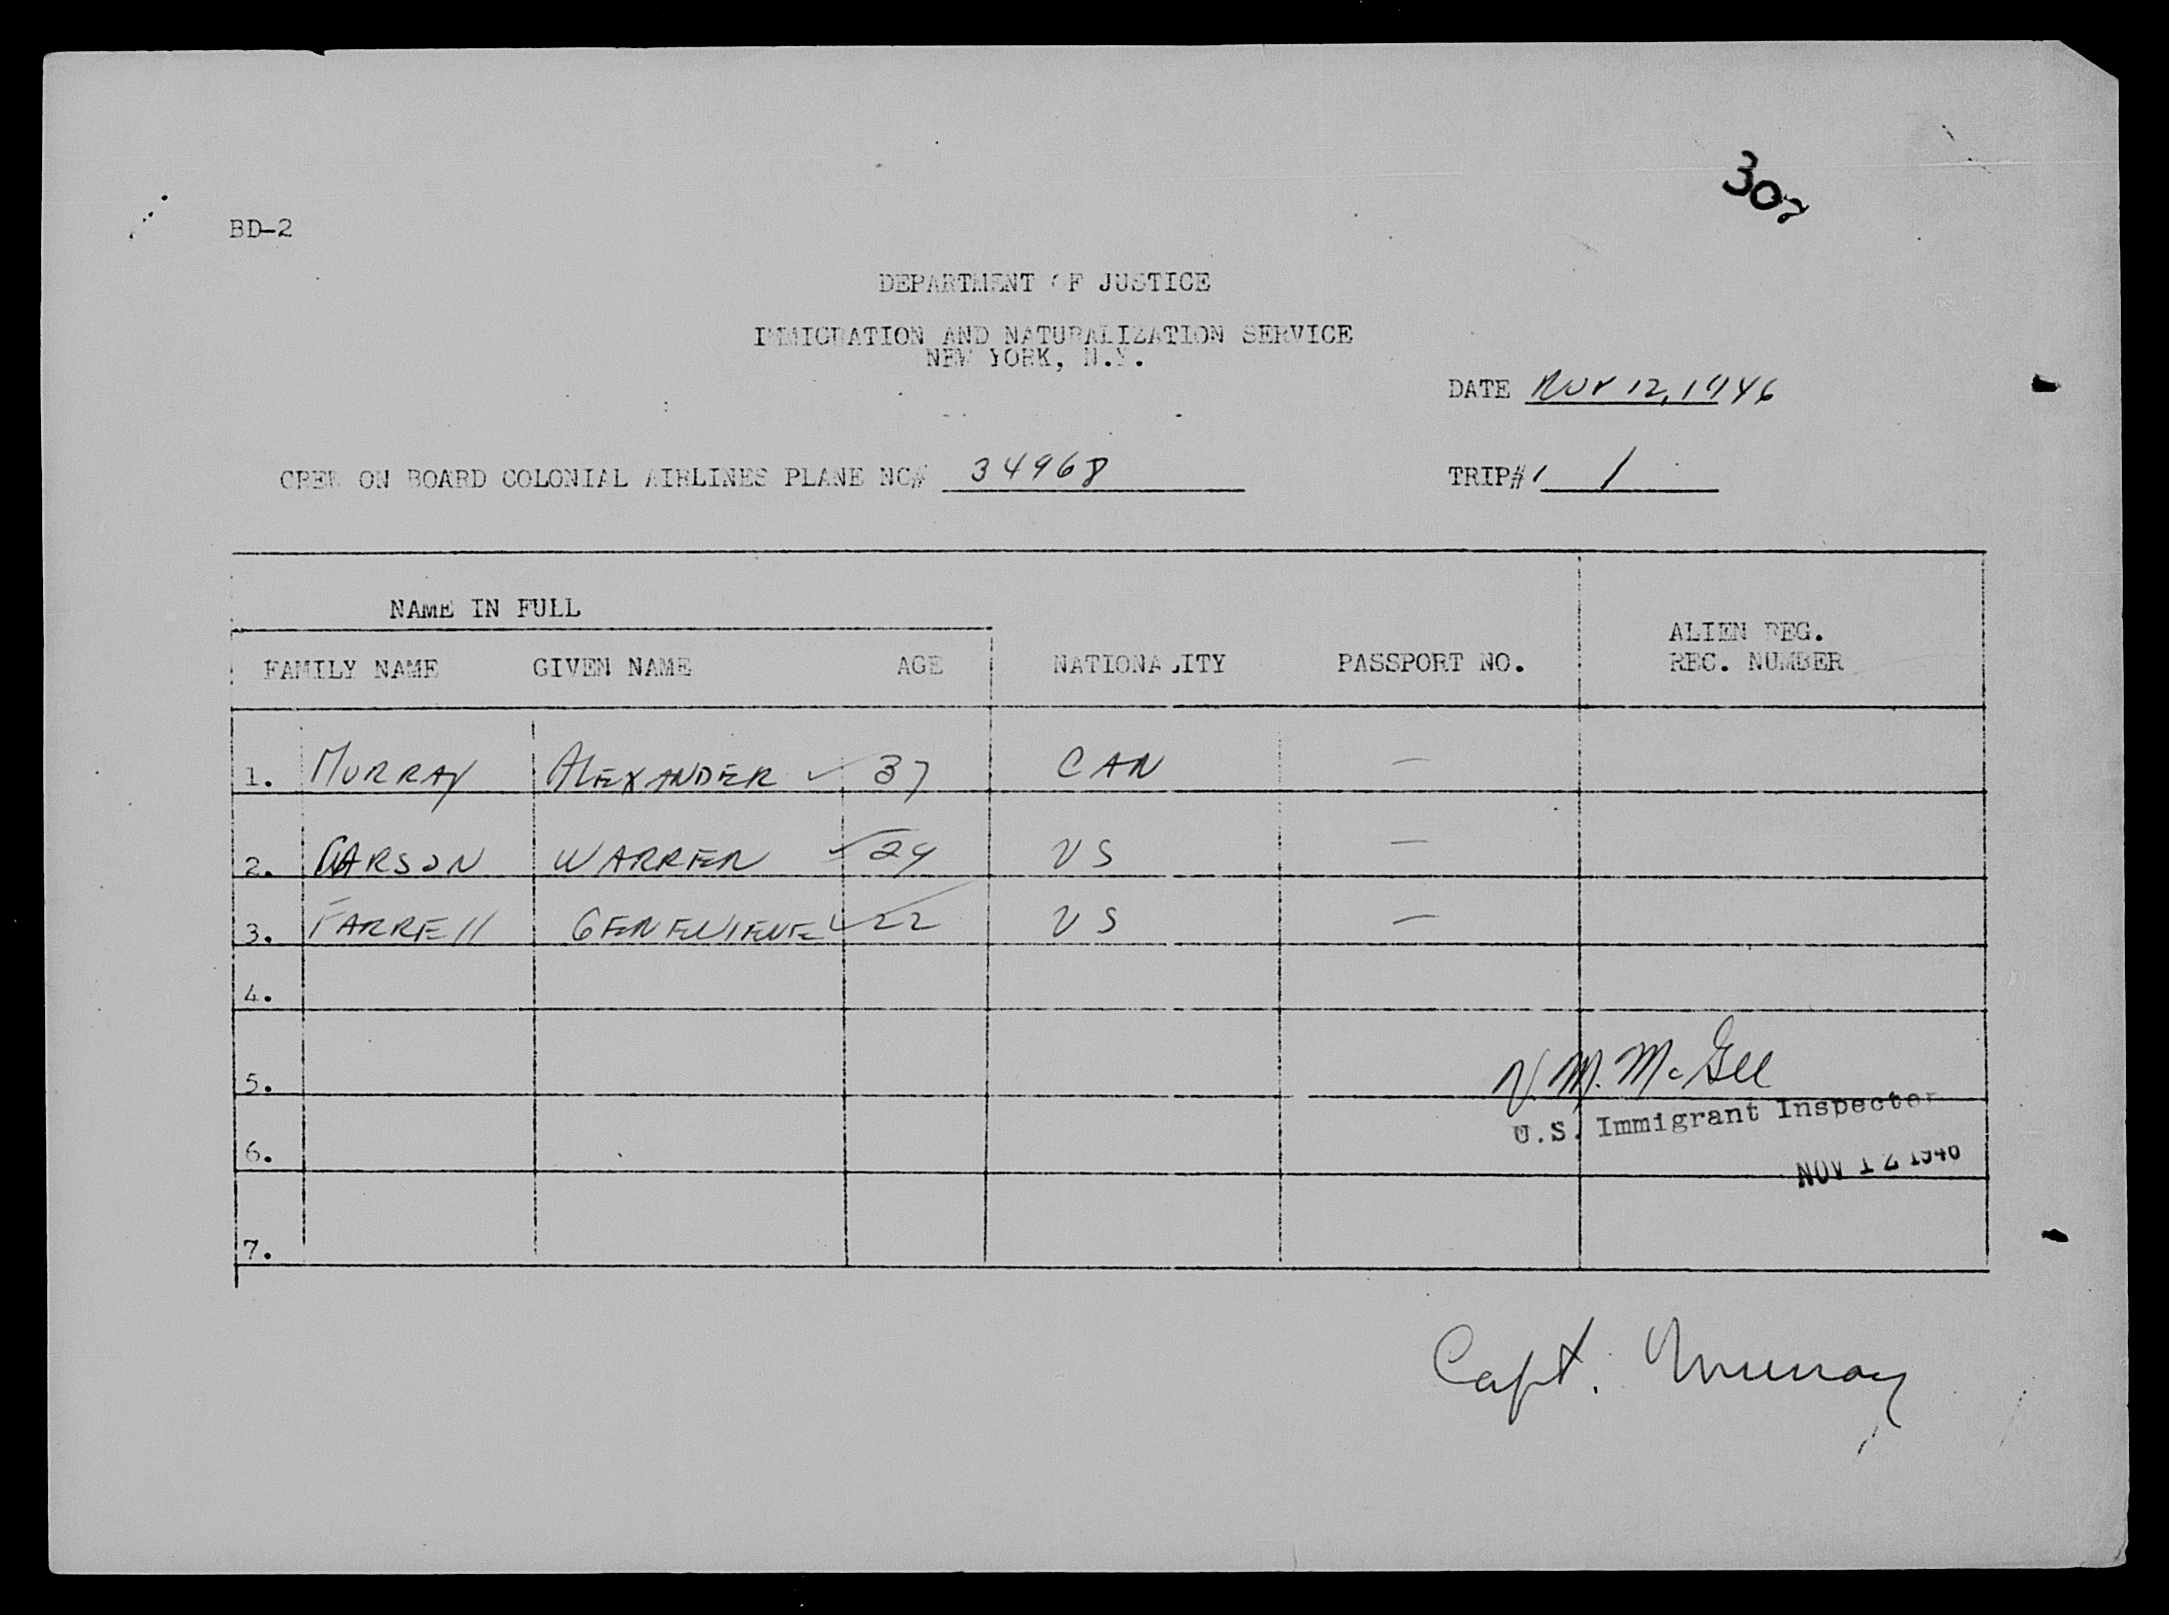 307
BD-2
DEPARTMENT OF JUSTICE
IMMIGRATION AND NATURALIZATION SERVICE
NEW YORK, N.Y.
DATE Nov 12, 1946
CREW ON BOARD COLONIAL AIRLINES PLANE NC# 34968 TRIP# 1
NAME IN FULL
FAMILY NAME GIVEN NAME AGE NATIONALITY PASSPORT NO. ALIEN REG. REC. NUMBER
1. MURRAY ALEXANDER ✓ 37 CAN —
2. CARSON WARREN ✓ 24 US —
3. FARRELL GENEVIEVE ✓ 22 US —
4.
5.
V. M. McGee
U.S. Immigrant Inspector
6.
NOV 12 1946
7.
Capt. Murray